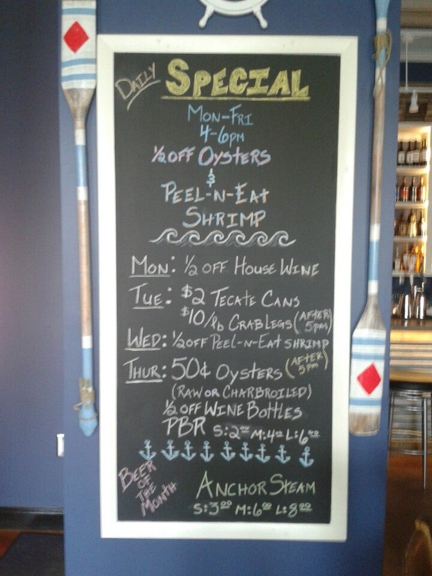 DAILY
SPECIAL
MON-FRI
4-6PM
1/2 OFF OYSTERS
&
PEEL-N-EAT
SHRIMP
MON: 1/2 OFF HOUSE WINE
TUE: $2 TECATE CANS
$10/lb CRAB LEGS (AFTER 5PM)
WED: 1/2 OFF PEEL-N-EAT SHRIMP
THUR: 50¢ OYSTERS (AFTER 5PM)
(RAW OR CHARBROILED)
1/2 OFF WINE BOTTLES
PBR S:2 M:4 L:6
BEER OF THE MONTH
ANCHOR STEAM
S:3 M:6 L:8